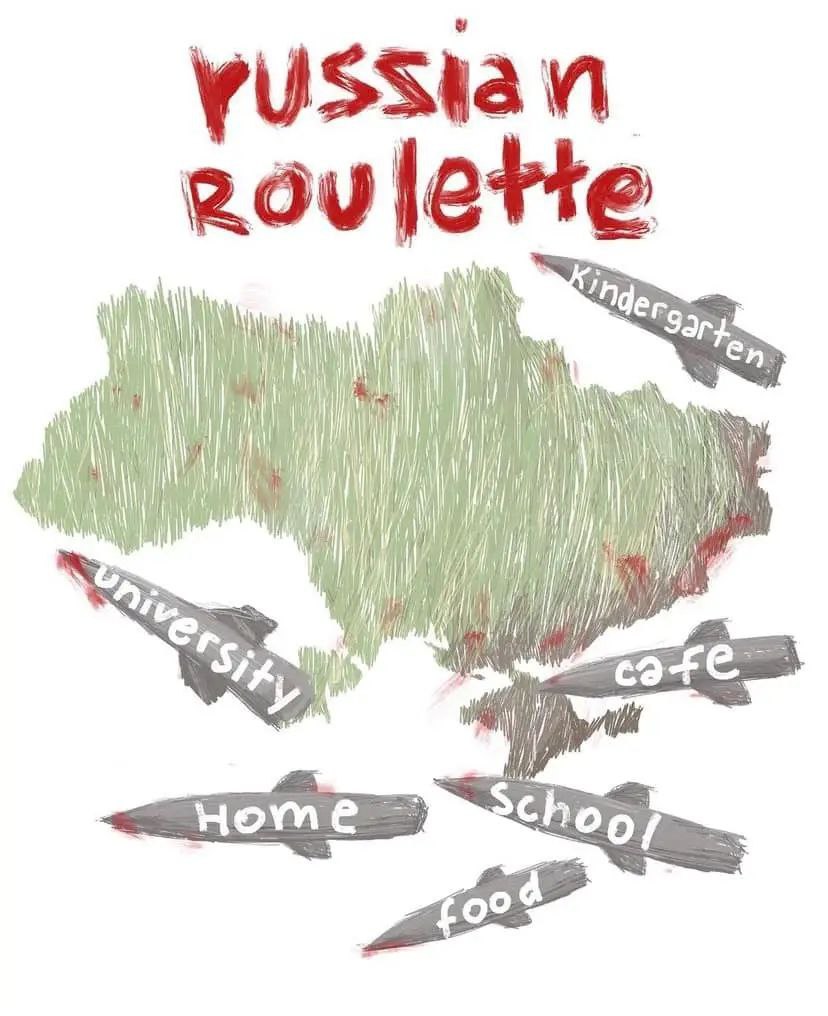 russian
Roulette
Kindergarten
university
cafe
Home
School
food